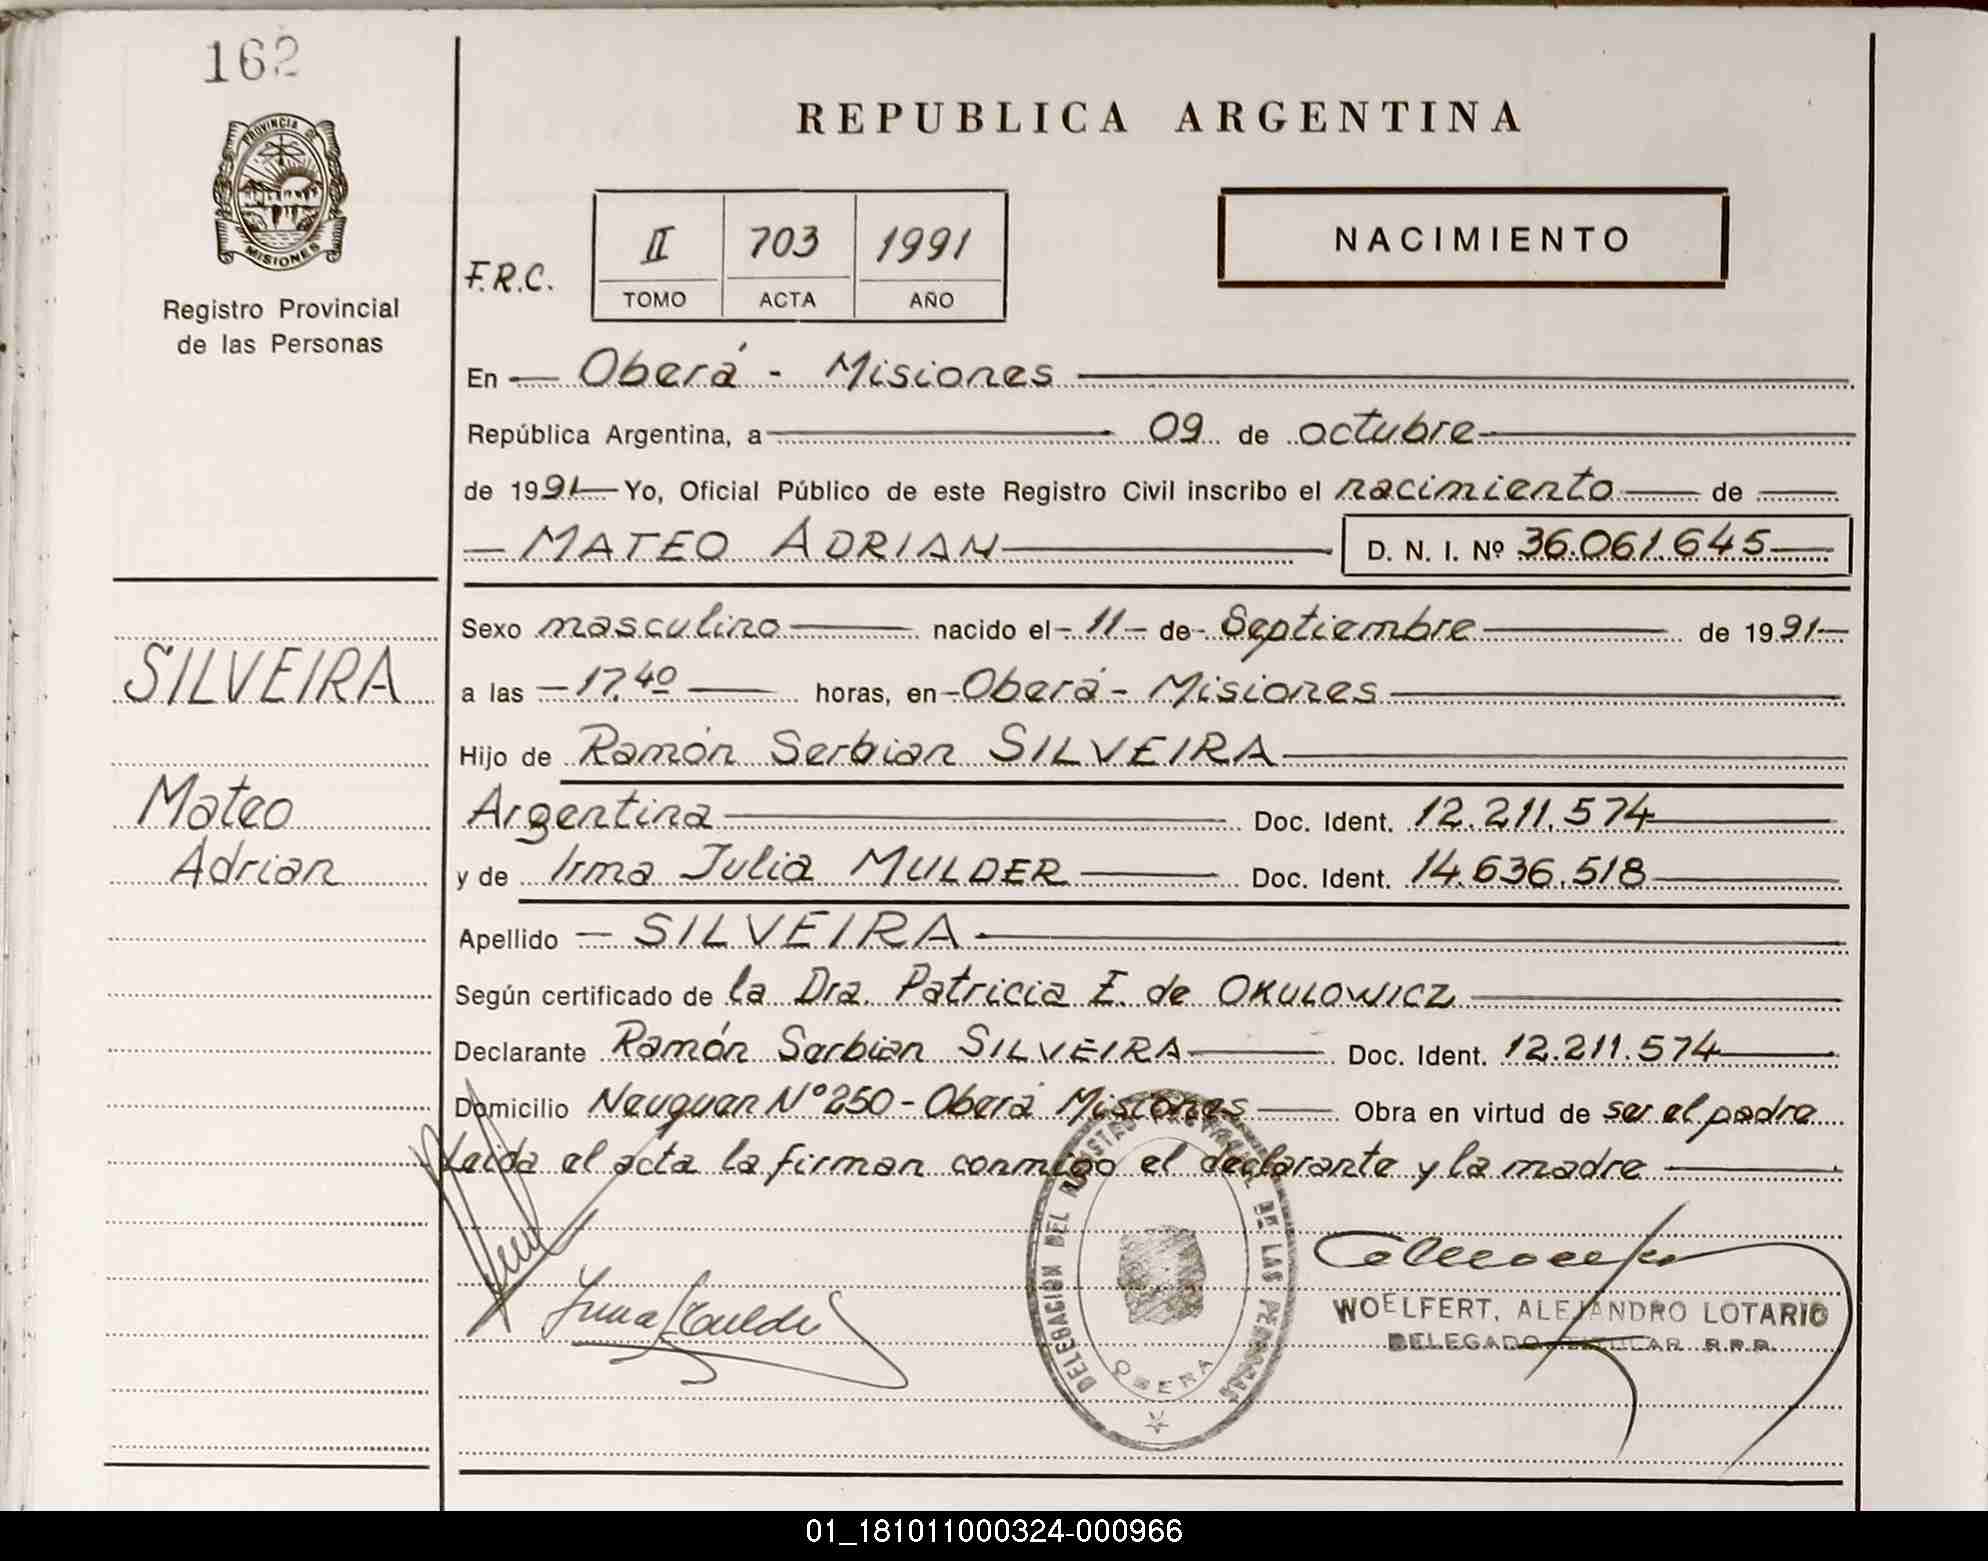 162
PROVINCIA DE
MISIONES
Registro Provincial
de las Personas
REPUBLICA ARGENTINA
F.R.C.
II 703 1991
TOMO ACTA AÑO
NACIMIENTO
En Oberá - Misiones
República Argentina, a 09 de octubre
de 1991 Yo, Oficial Público de este Registro Civil inscribo el nacimiento de
MATEO ADRIAN D. N. I. Nº 36.061.645
Sexo masculino nacido el 11 de Septiembre de 1991
SILVEIRA
a las 17,40 horas, en Oberá - Misiones
Hijo de Ramón Serbian SILVEIRA
Mateo
Argentina Doc. Ident. 12.211.574
Adrian
y de Irma Julia MULDER Doc. Ident. 14.636.518
Apellido SILVEIRA
Según certificado de la Dra. Patricia E. de OKULOWICZ
Declarante Ramón Serbian SILVEIRA Doc. Ident. 12.211.574
Domicilio Neuquen Nº 250 - Oberá Misiones Obra en virtud de ser el padre
Leida el acta la firman conmigo el declarante y la madre
DELEGACION DEL REGISTRO PROVINCIAL DE LAS PERSONAS
OBERA
Irma Mulder
WOELFERT, ALEJANDRO LOTARIO
DELEGADO TITULAR R.P.P.
01_181011000324-000966